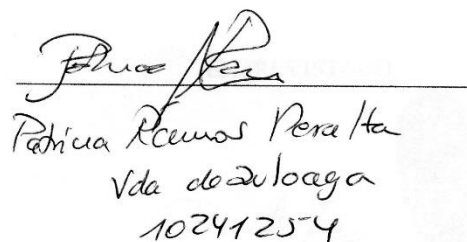 Patricia Ramos Peralta
Vda de Zuloaga
10241254